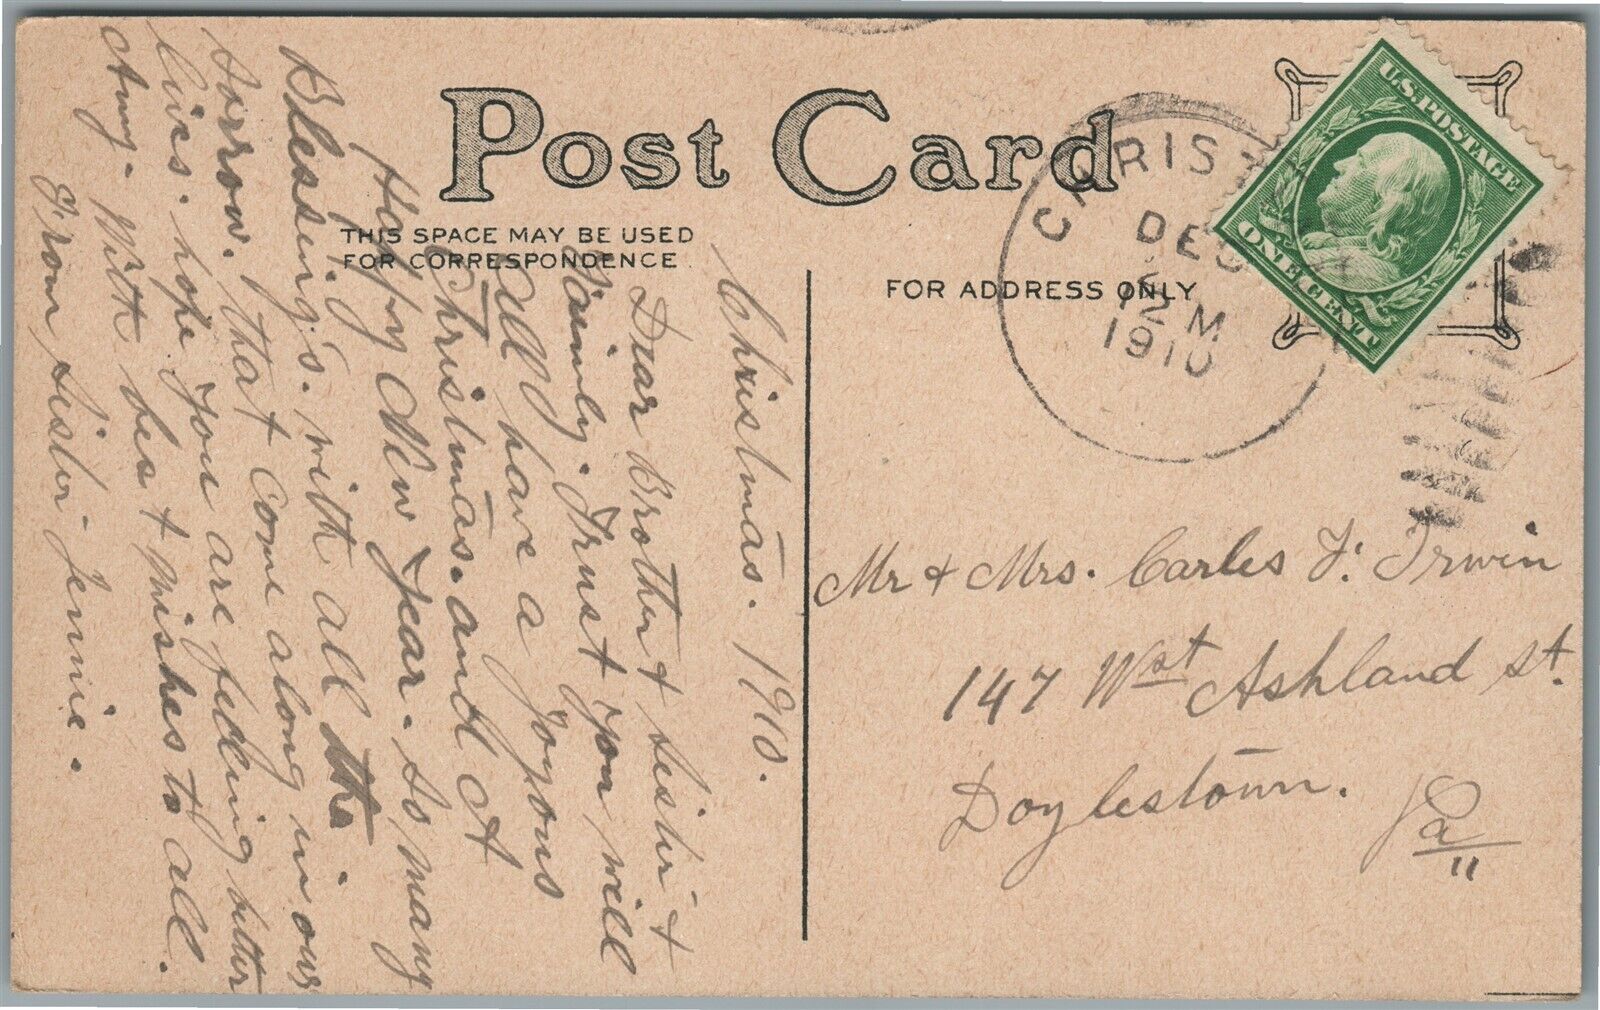 Post Card
THIS SPACE MAY BE USED
FOR CORRESPONDENCE
FOR ADDRESS ONLY
U.S. POSTAGE
ONE CENT
CHRIST
DEC
12 M
1910
Christmas. 1910.
Dear Brother & Sister &
Family. Trust you will
all have a Joyous
Christmas. and A
Happy New Year. So many
Blessing's. with all the
sorrow. that come along in our
lives. hope you are feeling better
Amy. With best wishes to all.
From Sister Jennie.
Mr & Mrs. Carles F. Irwin
147 Wst Ashland St.
Doylestown.
Pa